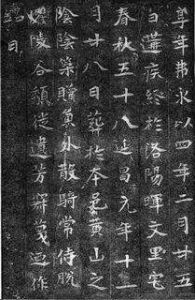 年弗永以四年二月廿五
日遘疾終於洛陽暉文里宅
春秋五十八延昌元年十一
月廿八日葬於本邑黃山之
陰陰策贈員外散騎常侍脫
陵谷頹徙遺芳箋迺作
銘曰